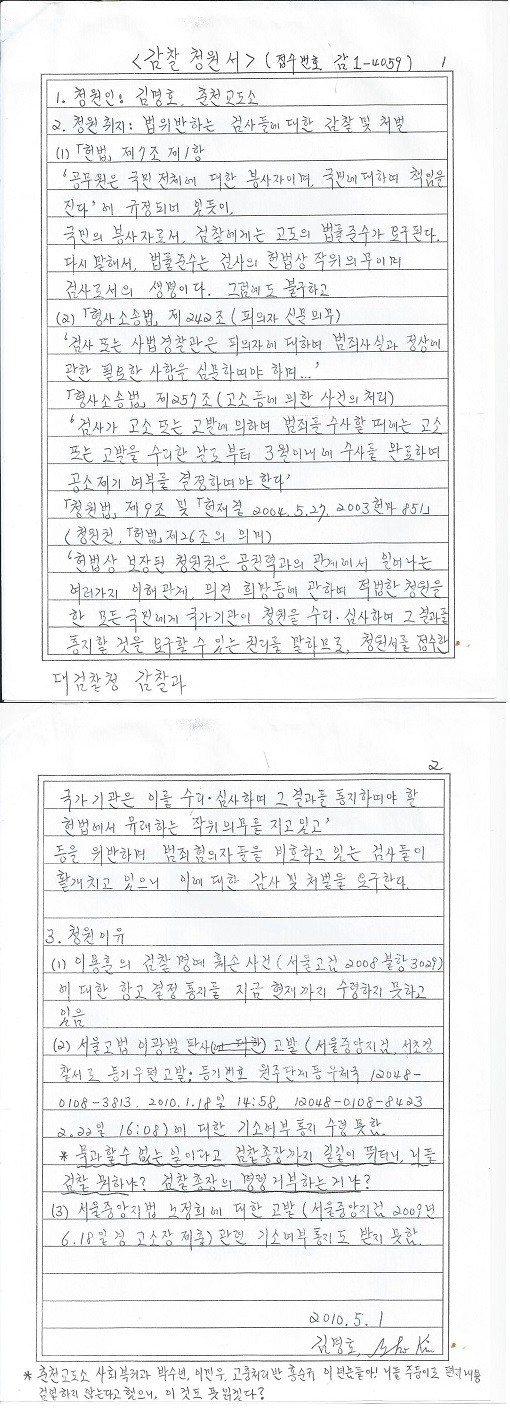 <감찰 청원서> (접수번호 감1-4059) 1
1. 청원인: 김명호, 춘천교도소
2. 청원취지: 법위반하는 검사들에 대한 감찰 및 처벌
(1) 「헌법」 제7조 제1항
'공무원은 국민전체에 대한 봉사자이며, 국민에 대하여 책임을
진다'에 규정되어 있듯이,
국민의 봉사자로서, 검찰에게는 고도의 법률준수가 요구된다.
다시 말해서, 법률준수는 검사의 헌법상 작위의무이며
검사로서의 생명이다. 그럼에도 불구하고
(2) 「형사소송법」 제242조 (피의자 신문의무)
'검사 또는 사법경찰관은 피의자에 대하여 범죄사실과 정상에
관한 필요한 사항을 심문하여야 하며...'
「형사소송법」 제257조 (고소등에 의한 사건의 처리)
'검사가 고소 또는 고발에 의하여 범죄를 수사할 때에는 고소
또는 고발을 수리한 날로부터 3월이내에 수사를 완료하여
공소제기 여부를 결정하여야 한다'
「청원법」 제9조 및 「헌재결 2004.5.27, 2003헌마851」
(청원권, 「헌법」 제26조의 의미)
'헌법상 보장된 청원권은 공권력과의 관계에서 일어나는
여러가지 이해관계, 의견 희망등에 관하여 적법한 청원을
한 모든 국민에게 국가기관이 청원을 수리·심사하여 그 결과를
통지할 것을 요구할 수 있는 권리를 말하므로, 청원서를 접수한
대검찰청 감찰과
2
국가기관은 이를 수리·심사하여 그 결과를 통지하여야 할
헌법에서 유래하는 작위의무를 지고있고'
등을 위반하며 범죄혐의자들을 비호하고 있는 검사들이
활개치고 있으니 이에 대한 감사 및 처벌을 요구한다.
3. 청원이유
(1) 이용훈의 검찰 명예훼손 사건 (서울고검 2008불항3029)
에 대한 항고 결정 통지를 지금 현재까지 수령하지 못하고
있음
(2) 서울고법 이광범 판사(에 대한) 고발 (서울중앙지검, 서초경
찰서로 등기우편고발; 등기번호 원주단계동우체국 12048-
0108-3813, 2010.1.18일 14:58, 12048-0108-8423
2.22일 16:08)에 대한 기소여부 통지 수령 못함.
* 묵과할 수 없는 일이라고 검찰총장까지 길길이 뛰더니, 니들
검찰 뭐하냐? 검찰총장의 명령 거부하는 거냐?
(3) 서울중앙지법 노정희에 대한 고발 (서울중앙지검 2009년
6.18일경 고소장 제출) 관련 기소여부 통지도 받지 못함.
2010.5.1
김명호,
* 춘천교도소 사회복귀과 박수연, 이진우, 고충처리반 홍순규 이 번놈들아! 니들 주둥이로 편지내용
검열하지 않는다고 했으니, 이것도 못 읽겠다?